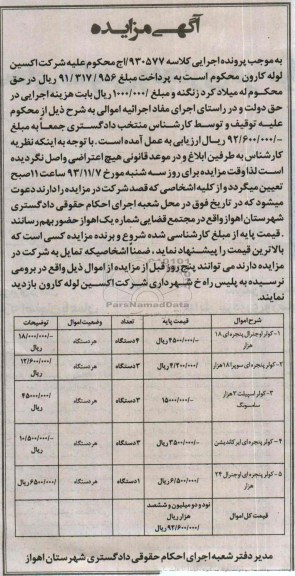 آگهی مزایده
به موجب پرونده اجرایی کلاسه ۹۳۰۵۷۷/اج محکوم علیه شرکت اکسین
لوله کارون محکوم است به پرداخت مبلغ ۹۱/۳۱۷/۹۵۶ ریال در حق
محکوم له میلاد کرد زنگنه و مبلغ ۱/۰۰۰/۰۰۰ ریال بابت هزینه اجرایی در
حق دولت و در راستای اجرای مفاد اجرائیه اموالی به شرح ذیل از محکوم
علیه توقیف و توسط کارشناس منتخب دادگستری جمعاً به مبلغ
۹۲/۶۰۰/۰۰۰/- ریال ارزیابی به عمل آمده است. با توجه به اینکه نظریه
کارشناس به طرفین ابلاغ و در موعد قانونی هیچ اعتراضی واصل نگردیده
است لذا وقت مزایده برای روز سه شنبه مورخ ۹۳/۱۱/۷ ساعت ۱۱ صبح
تعیین میگردد و از کلیه اشخاصی که قصد شرکت در مزایده را دارند دعوت
میشود که در تاریخ فوق در محل شعبه اجرای احکام حقوقی دادگستری
شهرستان اهواز واقع در مجتمع قضایی شماره یک اهواز حضور بهم رسانند
. قیمت پایه از مبلغ کارشناسی شده شروع و برنده مزایده کسی است که
بالاترین قیمت را پیشنهاد نماید، ضمناً اشخاصیکه تمایل به شرکت در
مزایده دارند می توانند پنج روز قبل از مزایده از اموال ذیل واقع در برومی
نرسیده به پلیس راه خ شهرداری شرکت اکسین لوله کارون بازدید
نمایند.
ParsNamadData
شرح اموال قیمت پایه تعداد وضعیت اموال توضیحات
۱- کولر اوجنرال پنجره ای ۱۸ هزار ۴۵۰۰/۰۰۰/- ریال ۴ دستگاه هر دستگاه ۱۸/۰۰۰/۰۰۰/- ریال
۲- کولر پنجره ای سوپرا ۱۸ هزار ۴/۲۰۰/۰۰۰/- ریال ۳ دستگاه هر دستگاه ۱۲/۶۰۰/۰۰۰ ریال
۳- کولر اسپیلت ۳ هزار سامسونگ ۱۵۰۰۰/۰۰۰/- ۳ دستگاه هر دستگاه ۴۵۰۰۰/۰۰۰ ریال
۴- کولر پنجره ای ایرکاندیشن ۳۵۰۰/۰۰۰/- ریال ۳ دستگاه هر دستگاه ۱۰/۵۰۰/۰۰۰/- ریال
۵- کولر پنجره ای اوجنرال ۲۴ هزار ۶/۵۰۰/۰۰۰/- ریال ۱ دستگاه هر دستگاه ۶۵۰۰/۰۰۰ ریال
قیمت کل اموال نود و دو میلیون و ششصد هزار ریال ۹۲/۶۰۰/۰۰۰/- ریال
مدیر دفتر شعبه اجرای احکام حقوقی دادگستری شهرستان اهواز